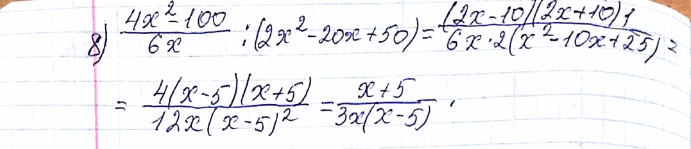 8) \frac{4x^2-100}{6x} : (2x^2-20x+50) = \frac{(2x-10)(2x+10)1}{6x \cdot 2(x^2-10x+25)} =
= \frac{4(x-5)(x+5)}{12x(x-5)^2} = \frac{x+5}{3x(x-5)} .